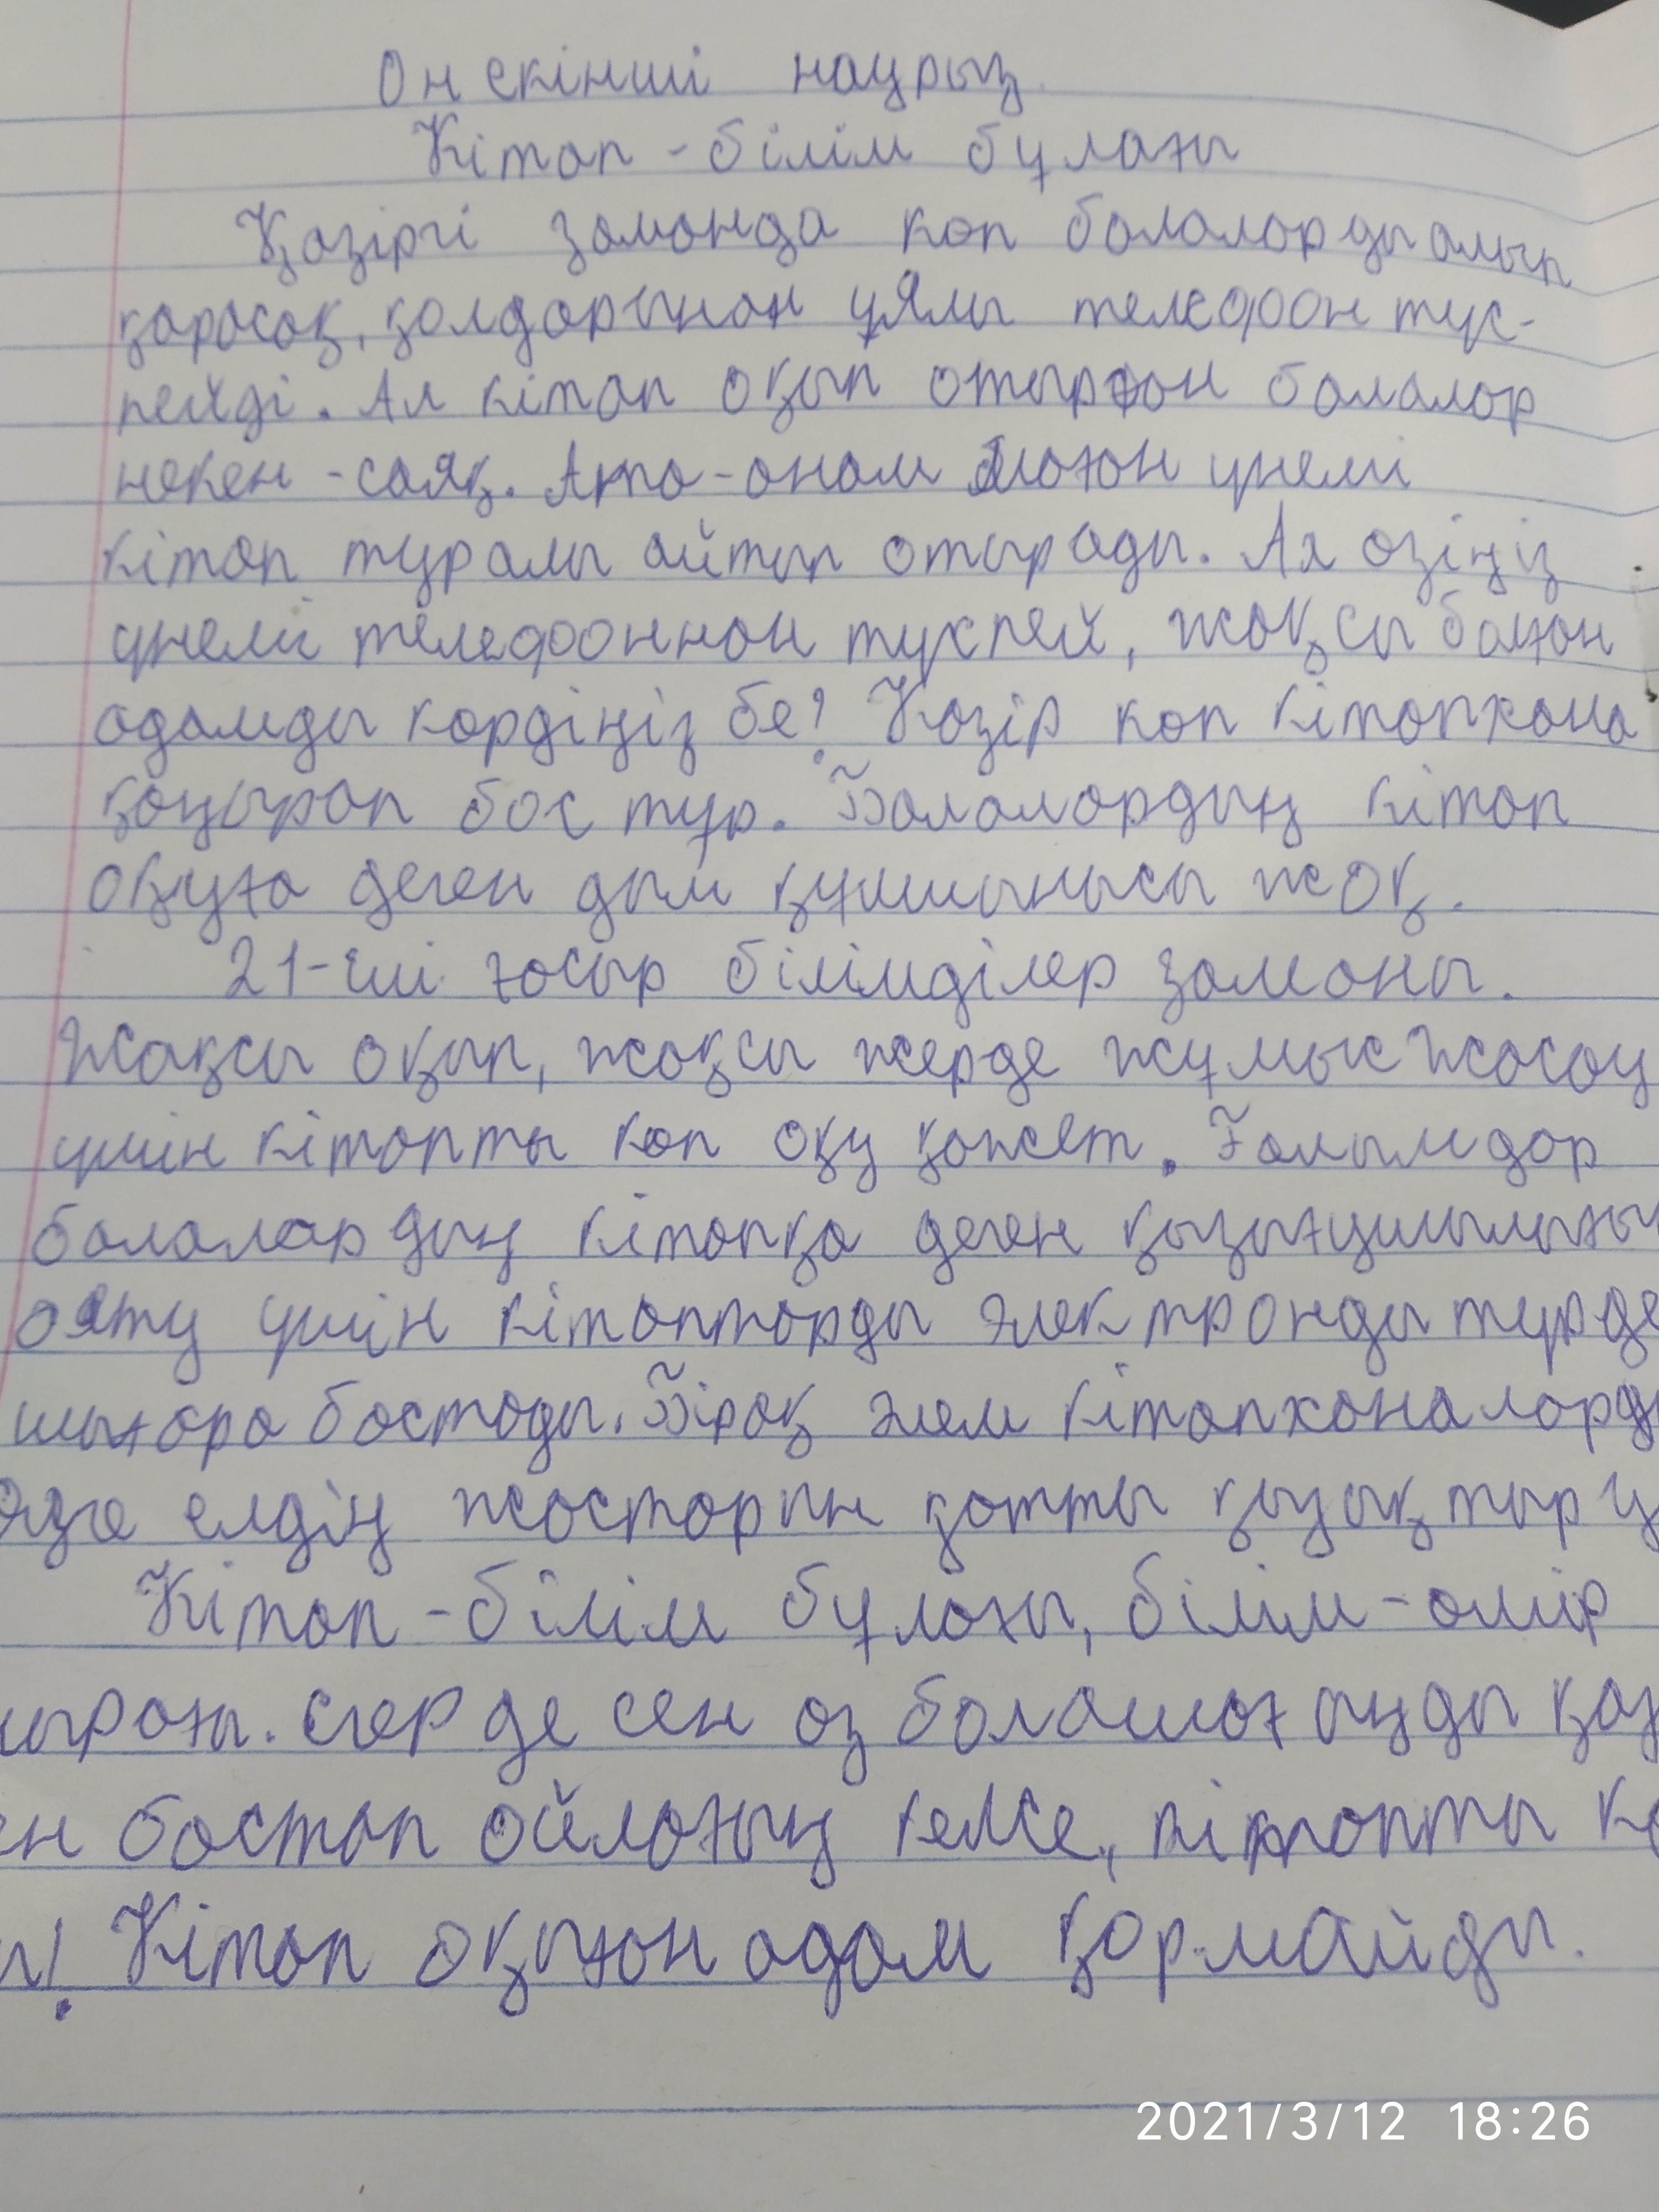 Он екінші наурыз.
Кітап - білім бұлағы
Қазіргі заманда көп балаларды алып
қарасақ, қолдарынан ұялы телефон түс-
пейді. Ал кітап оқып отырған балалар
некен - саяқ. Ата - анам маған үнемі
кітап туралы айтып отырады. Ал өзіңіз
үнемі телефоннан түспей, жақсы болған
адамды көрдіңіз бе? Қазір көп кітапхана
қаңырап бос тұр. Балалардың кітап
оқуға деген дым құлшынысы жоқ.
21-ші ғасыр білімділер заманы.
Жақсы оқып, жақсы жерде жұмыс жасау
үшін кітапты көп оқу қажет. Ғалымдар
балалардың кітапқа деген қызығушылығы
ояту үшін кітаптарды электронды түрде
шығара бастады. Бірақ әлем кітапханалард
өзге елдің жастарын қатты қызықтыру
Кітап - білім бұлағы, білім - өмір
ырағы. Егер де сен өз болашағыңды қаз
ен бастап ойлағың келсе, кітапты кө
ы! Кітап оқыған адам қормайды.
2021/3/12 18:26